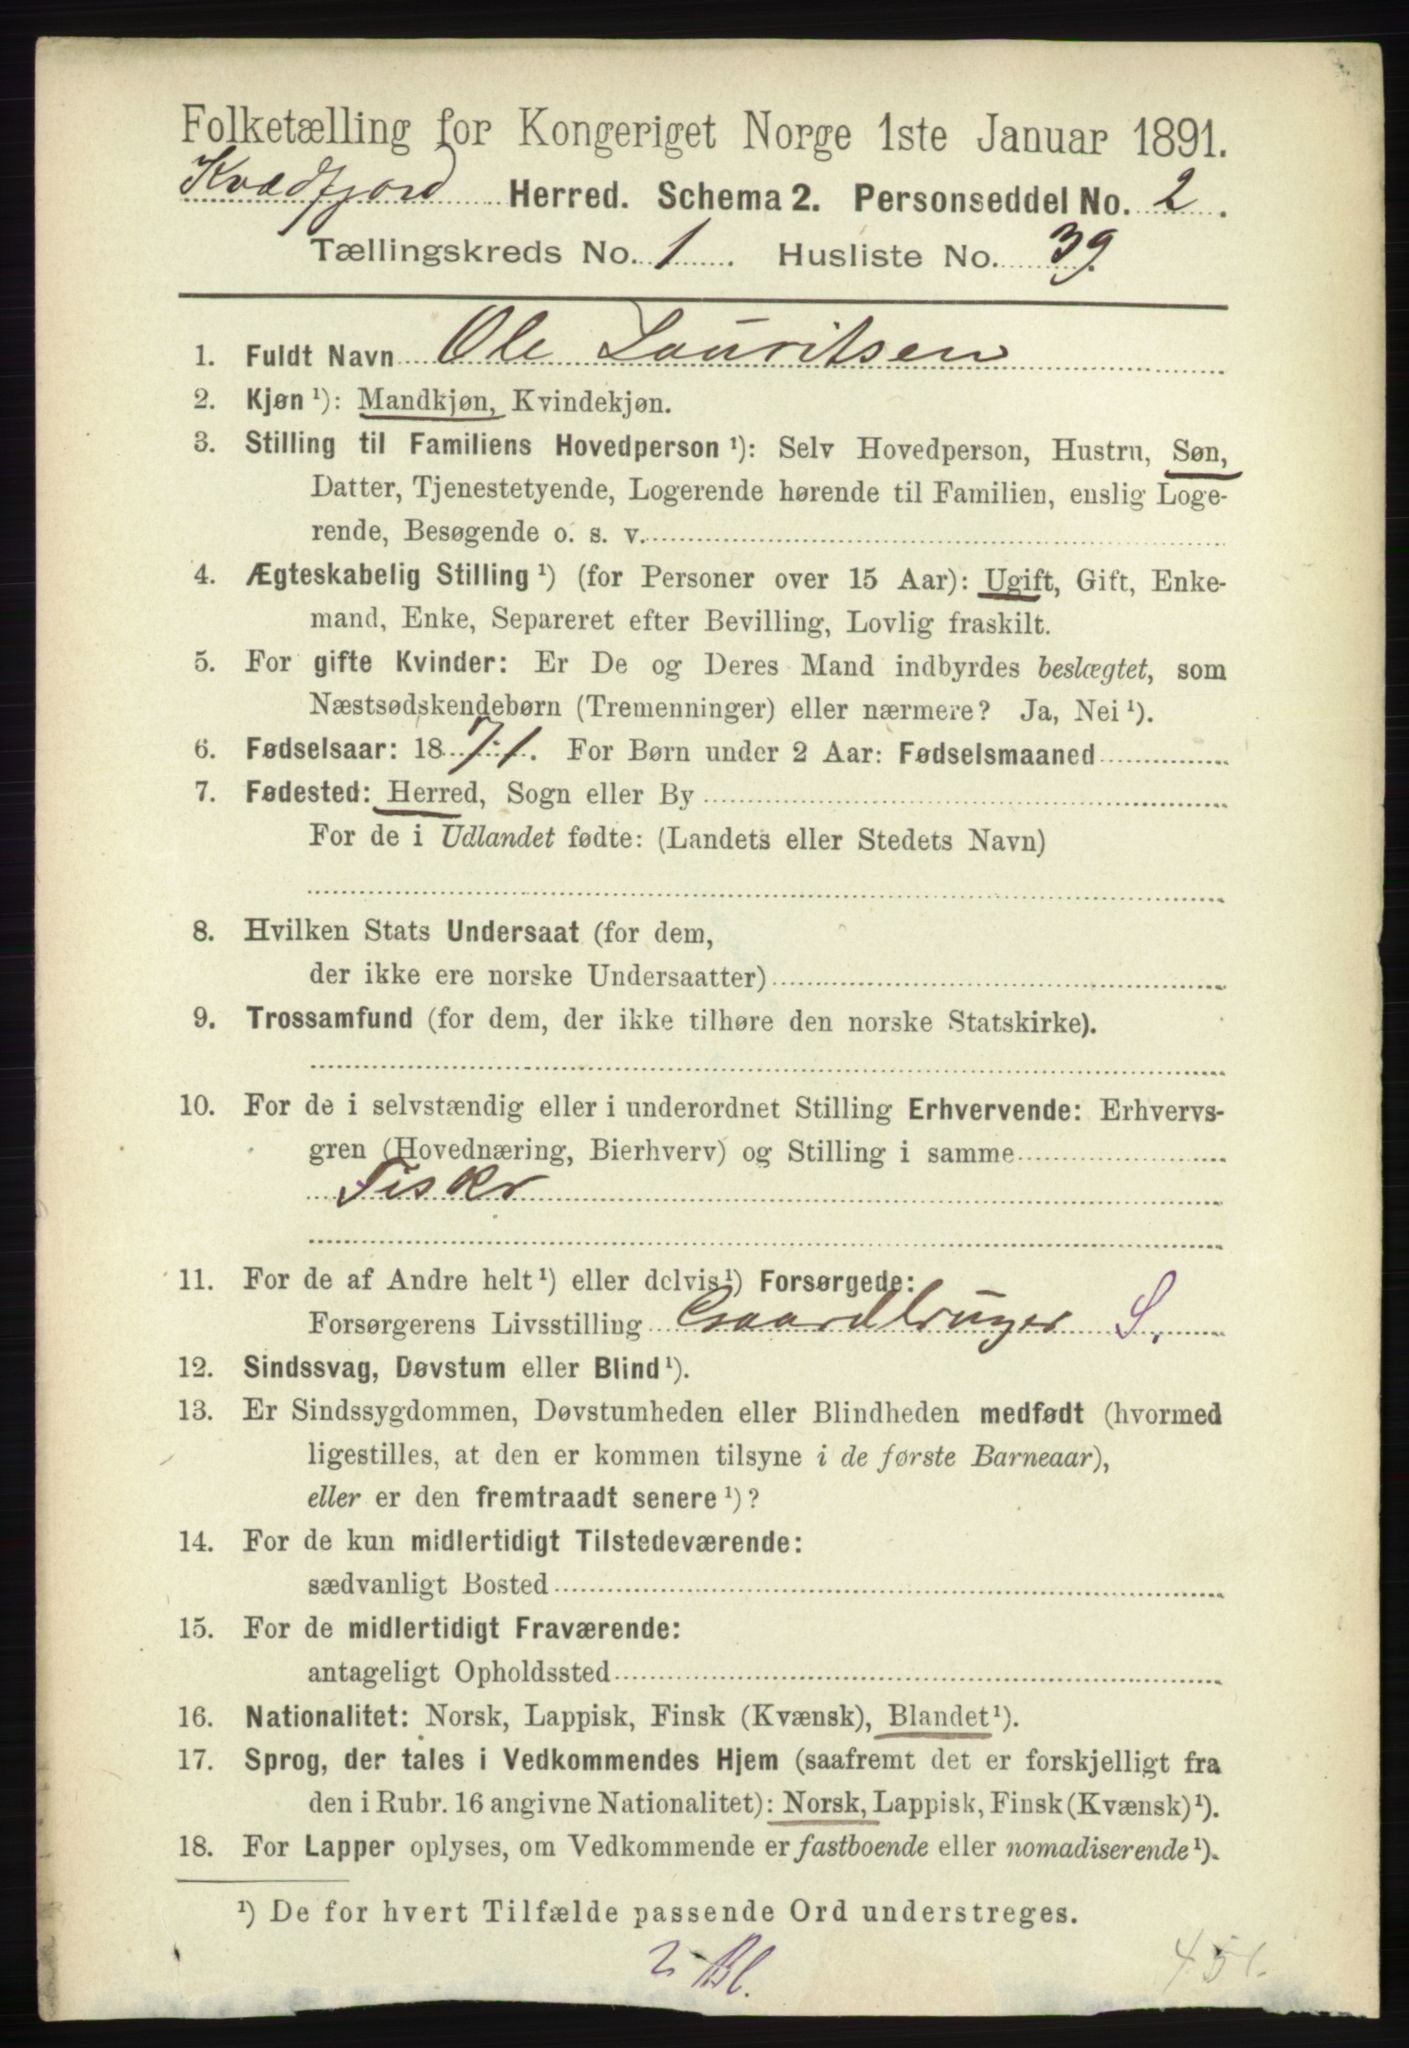 Folketælling for Kongeriget Norge 1ste Januar 1891.
Kvædfjord Herred. Schema 2. Personseddel No. 2.
Tællingskreds No. 1. Husliste No. 39.
1. Fuldt Navn Ole Lauritsen
2. Kjøn ¹): Mandkjøn, Kvindekjøn.
3. Stilling til Familiens Hovedperson ¹): Selv Hovedperson, Hustru, Søn,
Datter, Tjenestetyende, Logerende hørende til Familien, enslig Loge-
rende, Besøgende o. s. v.
4. Ægteskabelig Stilling ¹) (for Personer over 15 Aar): Ugift, Gift, Enke-
mand, Enke, Separeret efter Bevilling, Lovlig fraskilt.
5. For gifte Kvinder: Er De og Deres Mand indbyrdes beslægtet, som
Næstsødskendebørn (Tremenninger) eller nærmere? Ja, Nei ¹).
6. Fødselsaar: 1871. For Børn under 2 Aar: Fødselsmaaned
7. Fødested: Herred, Sogn eller By
For de i Udlandet fødte: (Landets eller Stedets Navn)
8. Hvilken Stats Undersaat (for dem,
der ikke ere norske Undersaatter)
9. Trossamfund (for dem, der ikke tilhøre den norske Statskirke).
10. For de i selvstændig eller i underordnet Stilling Erhvervende: Erhvervs-
gren (Hovednæring, Bierhverv) og Stilling i samme
Fiskr
11. For de af Andre helt ¹) eller delvis ¹) Forsørgede:
Forsørgerens Livsstilling Gaardbruger S.
12. Sindssvag, Døvstum eller Blind ¹).
13. Er Sindssygdommen, Døvstumheden eller Blindheden medfødt (hvormed
ligestilles, at den er kommen tilsyne i de første Barneaar),
eller er den fremtraadt senere ¹)?
14. For de kun midlertidigt Tilstedeværende:
sædvanligt Bosted
15. For de midlertidigt Fraværende:
antageligt Opholdssted
16. Nationalitet: Norsk, Lappisk, Finsk (Kvænsk), Blandet ¹).
17. Sprog, der tales i Vedkommendes Hjem (saafremt det er forskjelligt fra
den i Rubr. 16 angivne Nationalitet): Norsk, Lappisk, Finsk (Kvænsk) ¹).
18. For Lapper oplyses, om Vedkommende er fastboende eller nomadiserende ¹).
¹) De for hvert Tilfælde passende Ord understreges.
2 Bl.
451.